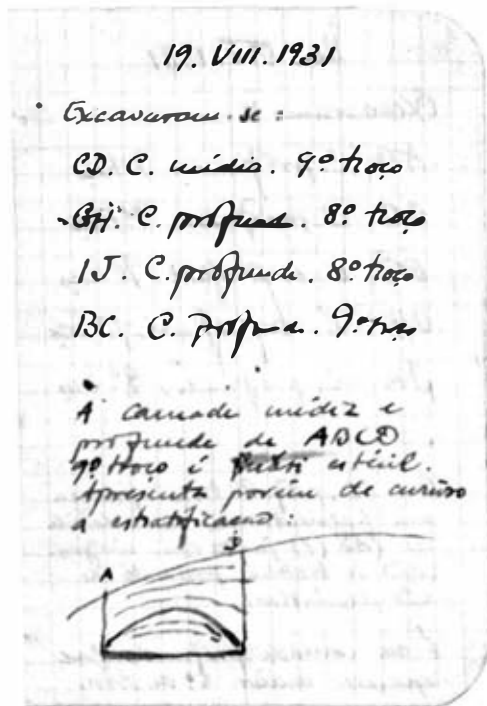 19. VIII. 1931
Excavaram se :
CD. C. média. 9º troço
C. profund. 8º troço
IJ. C. profunde. 8º troço
BC. C. Profun. 9º troço
A camade média e
profunde de ABCD
9º troço é quasi estéril.
Apresenta porém de curioso
a estratificação :
A
B